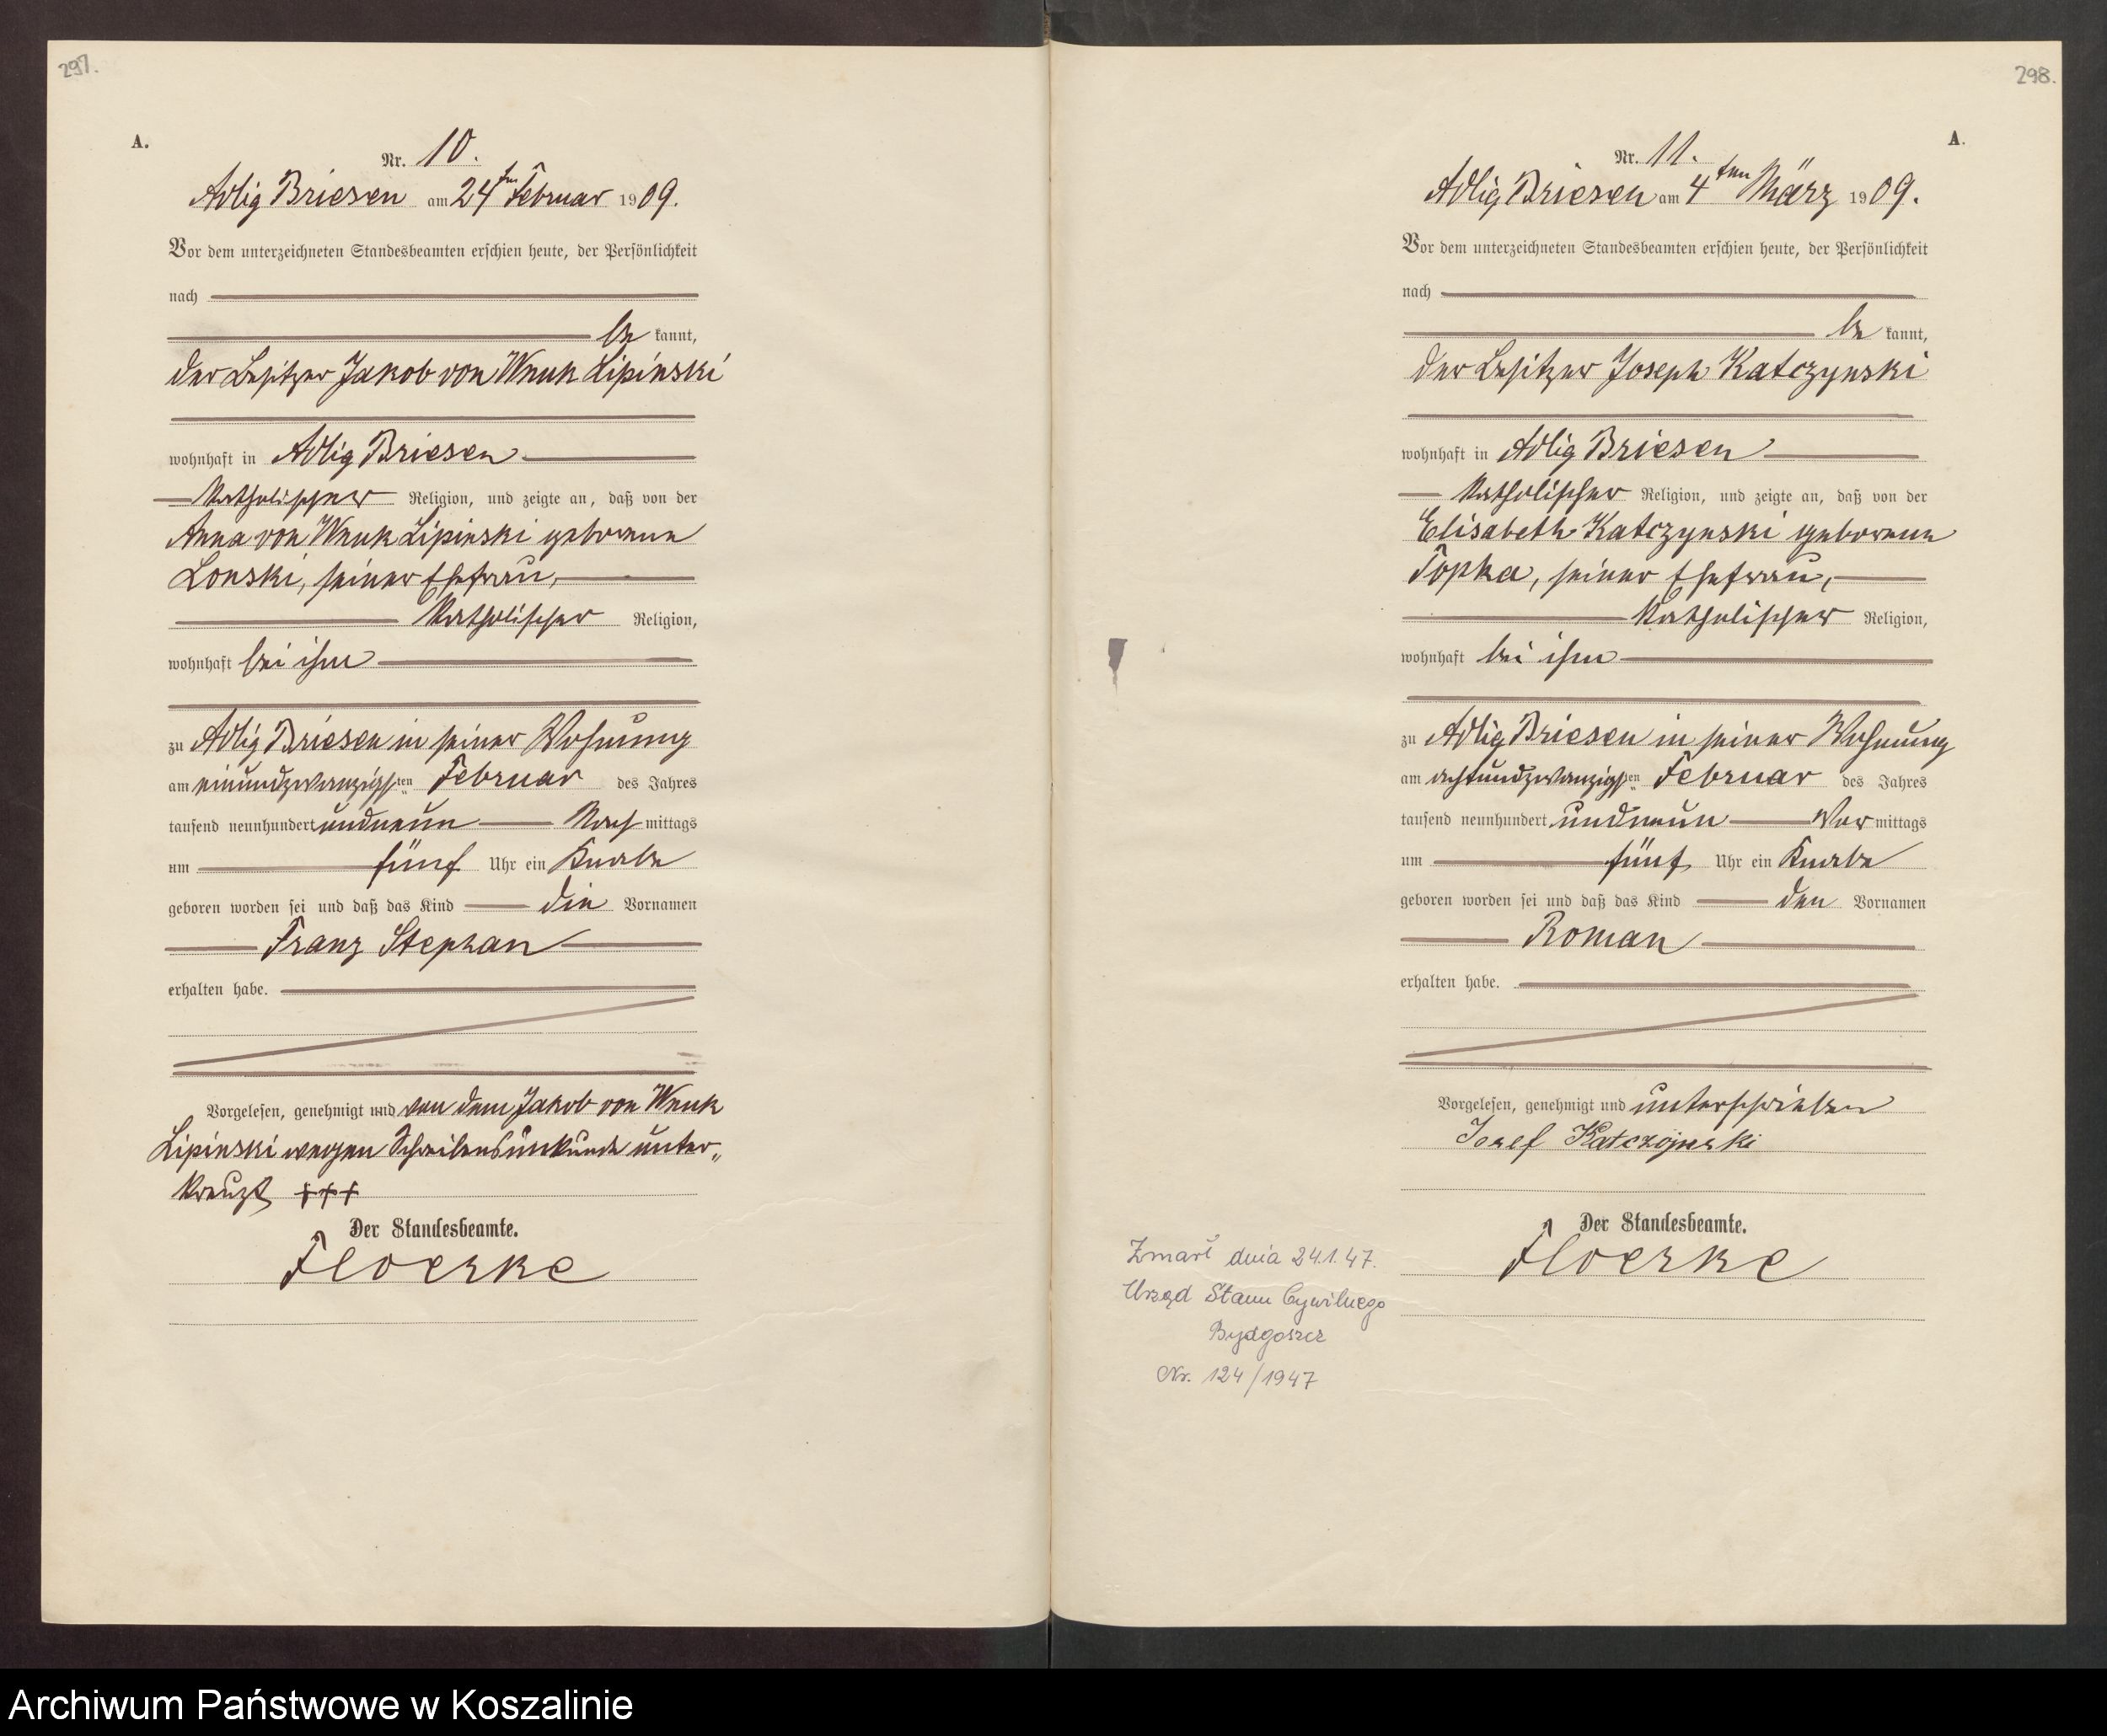 297.
A.
Nr. 10.
Adlig Briesen am 24ten Februar 1909.
Vor dem unterzeichneten Standesbeamten erschien heute, der Persönlichkeit
nach
be kannt,
der Besitzer Jakob von Wnuk Lipinski
wohnhaft in Adlig Briesen
katholischer Religion, und zeigte an, daß von der
Anna von Wnuk Lipinski geborene
Lonski, seiner Ehefrau,
katholischer Religion,
wohnhaft bei ihm
zu Adlig Briesen in seiner Wohnung
am einundzwanzigsten Februar des Jahres
tausend neunhundert undneun Nach mittags
um fünf Uhr ein Knabe
geboren worden sei und daß das Kind die Vornamen
Franz Stephan
erhalten habe.
Vorgelesen, genehmigt und von dem Jakob von Wnuk
Lipinski wegen Schreibensunkunde unter„
kreuzt +++
Der Standesbeamte.
Floerke
298.
A.
Nr. 11.
Adlig Briesen am 4ten März 1909.
Vor dem unterzeichneten Standesbeamten erschien heute, der Persönlichkeit
nach
be kannt,
der Besitzer Joseph Katczynski
wohnhaft in Adlig Briesen
katholischer Religion, und zeigte an, daß von der
Elisabeth Katczynski geborene
Topka, seiner Ehefrau,
katholischer Religion,
wohnhaft bei ihm
zu Adlig Briesen in seiner Wohnung
am achtundzwanzigsten Februar des Jahres
tausend neunhundert undneun Vor mittags
um fünf Uhr ein Knabe
geboren worden sei und daß das Kind den Vornamen
Roman
erhalten habe.
Vorgelesen, genehmigt und unterschrieben
Josef Katczöjnski
Der Standesbeamte.
Floerke
Zmarł dnia 24.1.47.
Urząd Stanu Cywilnego
Bydgoszcz
Nr. 124/1947
Archiwum Państwowe w Koszalinie